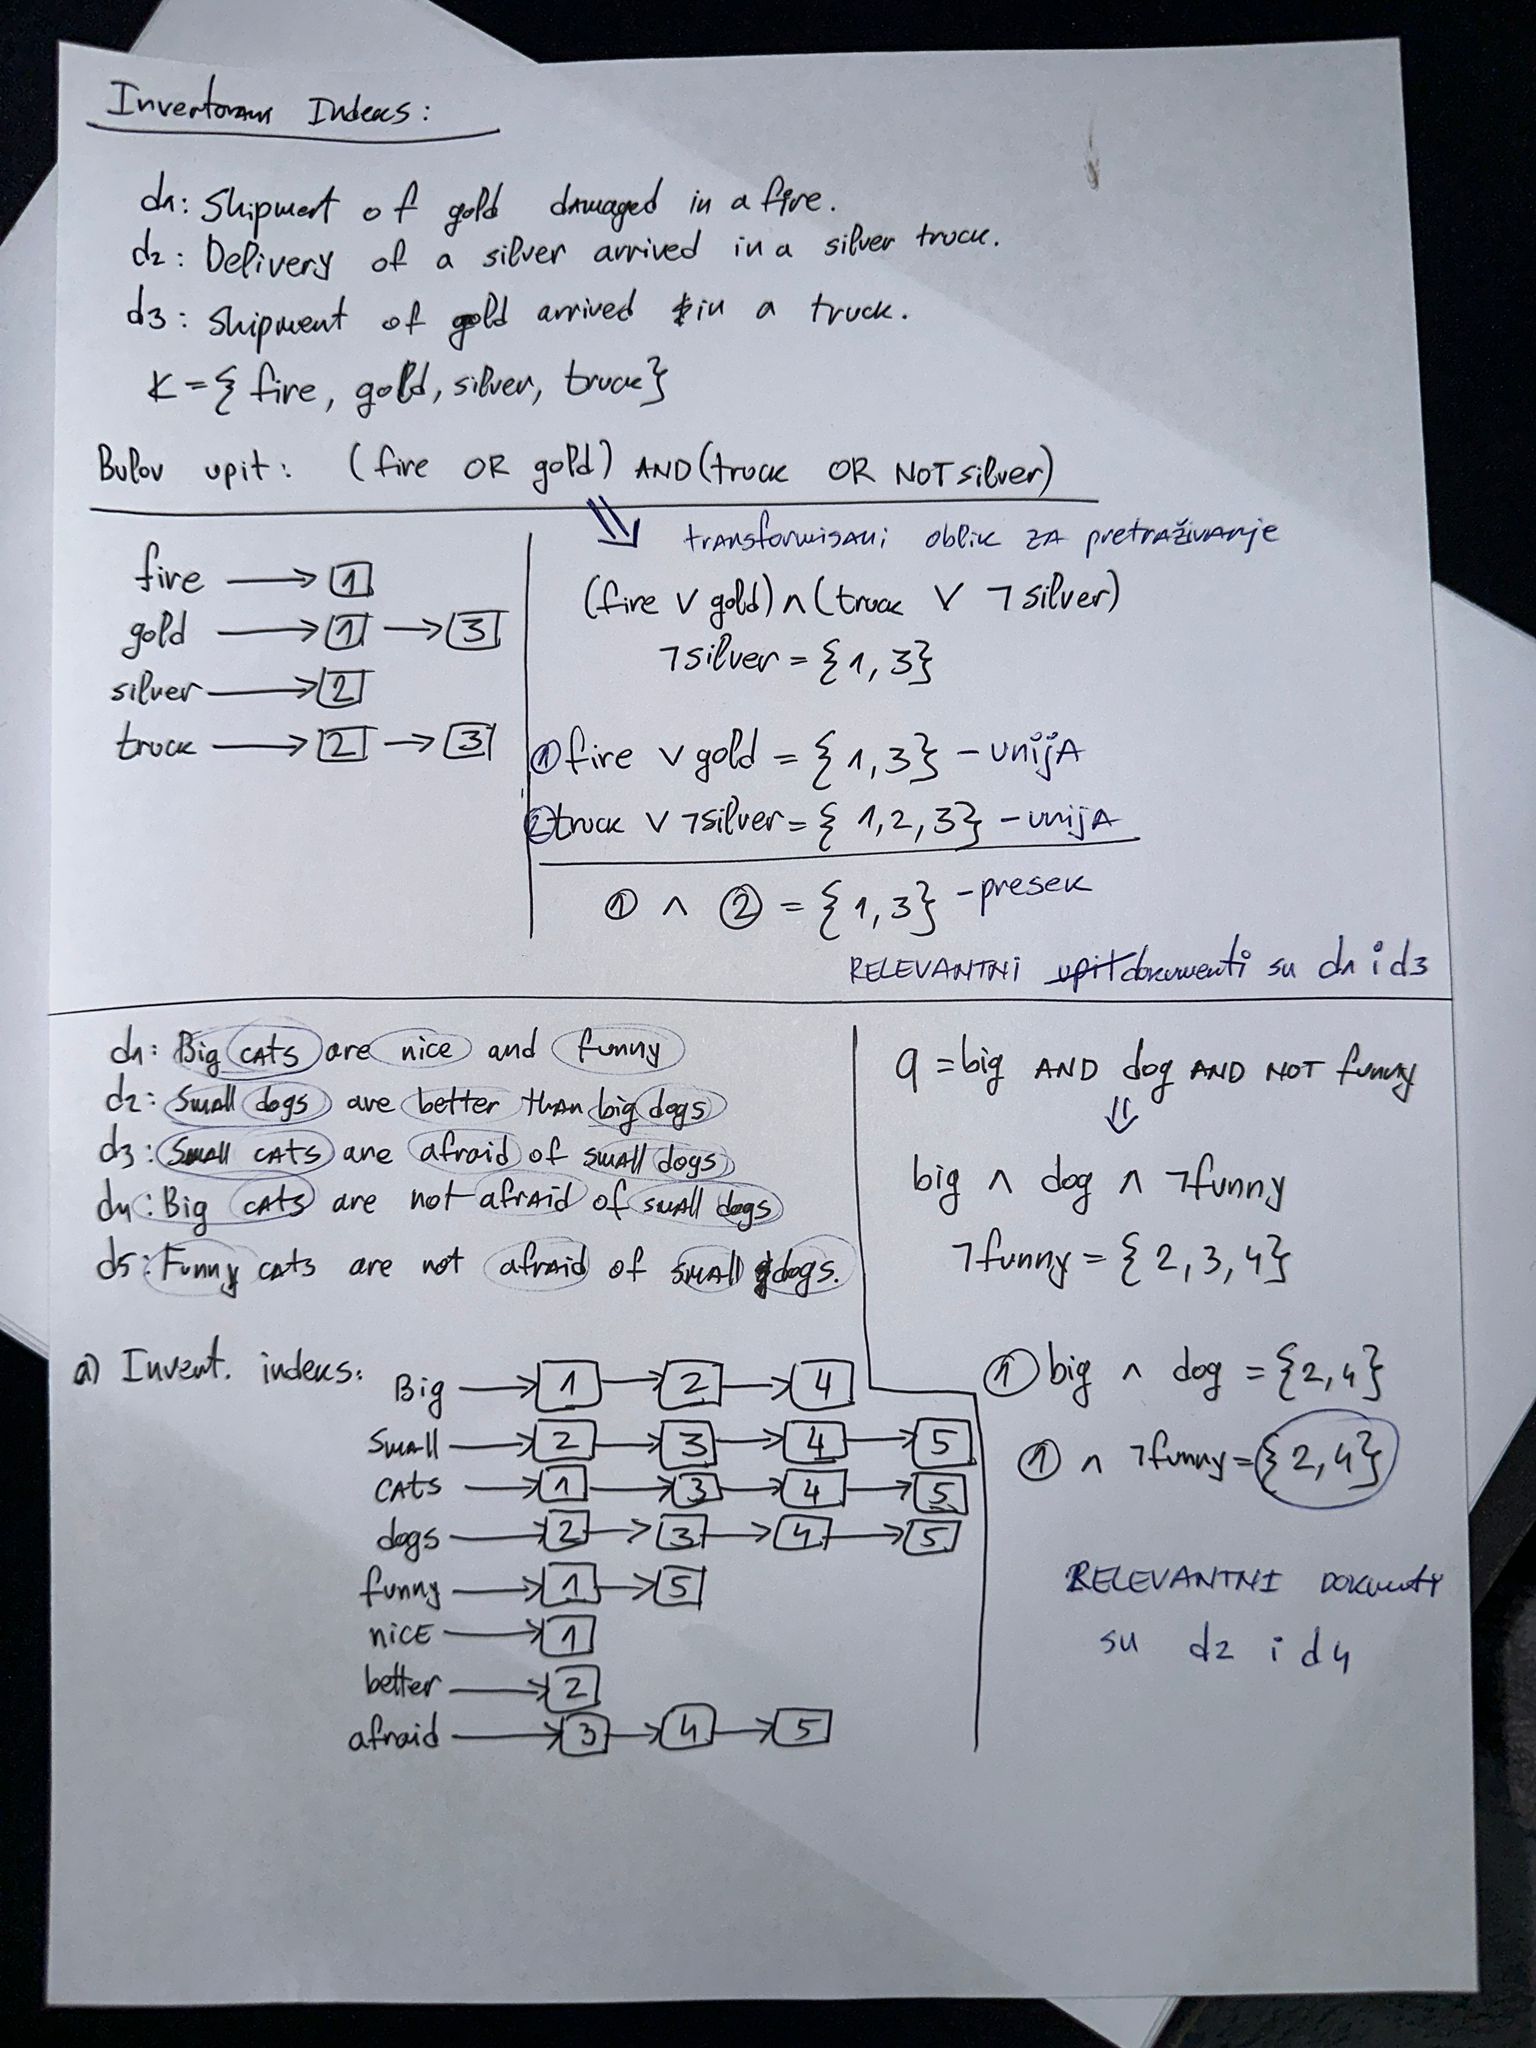 Invertovani Indeks:
d1: Shipment of gold damaged in a fire.
d2: Delivery of a silver arrived in a silver truck.
d3: Shipment of gold arrived in a truck.
K = { fire, gold, silver, truck}
Bulov upit: (fire OR gold) AND (truck OR NOT silver)
⇓ transformisani oblik ZA pretraživanje
fire → 1
gold → 1 → 3
silver → 2
truck → 2 → 3
(fire ∨ gold) ∧ (truck ∨ ¬silver)
¬silver = {1, 3}
① fire ∨ gold = {1,3} - unijA
② truck ∨ ¬silver = {1,2,3} - unijA
① ∧ ② = {1,3} - presek
RELEVANTNI upit dokumenti su d1 i d3
d1: Big cAts are nice and funny
d2: Small dogs are better thAn big dogs
d3: Small cAts are afraid of small dogs
d4: Big cAts are not afrAid of small dogs
d5: Funny cats are not afraid of small dogs.
a) Invert. indeks:
Big → 1 → 2 → 4
Small → 2 → 3 → 4 → 5
cAts → 1 → 3 → 4 → 5
dogs → 2 → 3 → 4 → 5
funny → 1 → 5
nicE → 1
better → 2
afraid → 3 → 4 → 5
q = big AND dog AND NOT funny
⇓
big ∧ dog ∧ ¬funny
¬funny = {2, 3, 4}
① big ∧ dog = {2,4}
① ∧ ¬funny = {2,4}
RELEVANTNI DOKumenti
su d2 i d4